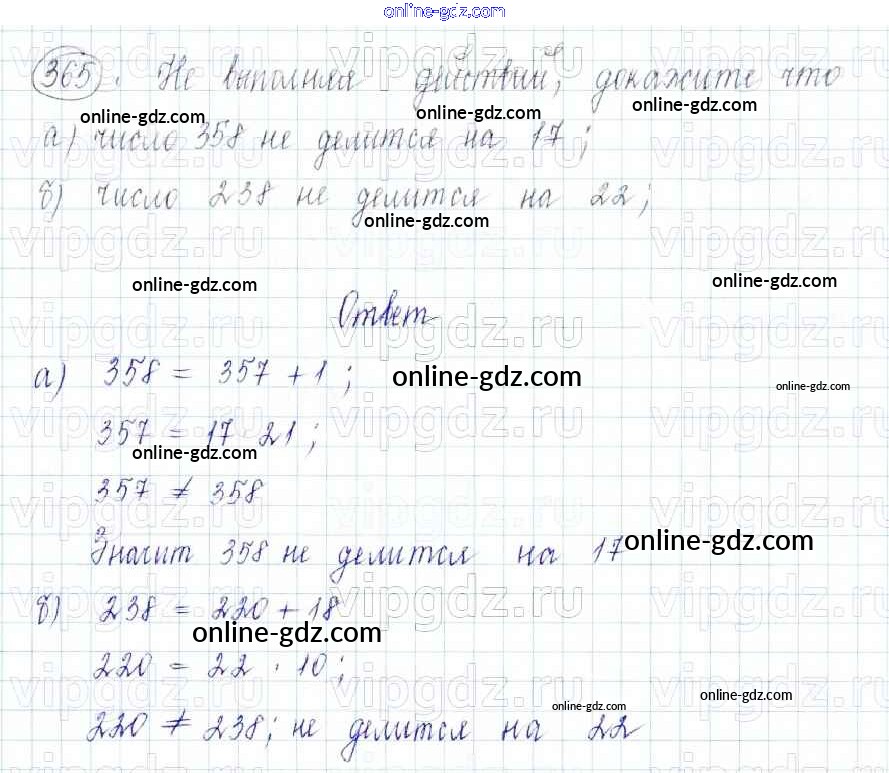 online-gdz.com
365. Не выполняя действий, докажите что
online-gdz.com online-gdz.com
а) число 358 не делится на 17;
online-gdz.com
б) число 238 не делится на 22;
online-gdz.com
vipgdz.ru vipgdz.ru vipgdz.ru
online-gdz.com online-gdz.com
Ответ
а) 358 = 357 + 1; online-gdz.com online-gdz.com
357 = 17 · 21;
online-gdz.com
357 ≠ 358
Значит 358 не делится на 17 online-gdz.com
б) 238 = 220 + 18
online-gdz.com
220 = 22 · 10;
online-gdz.com online-gdz.com
220 ≠ 238; не делится на 22